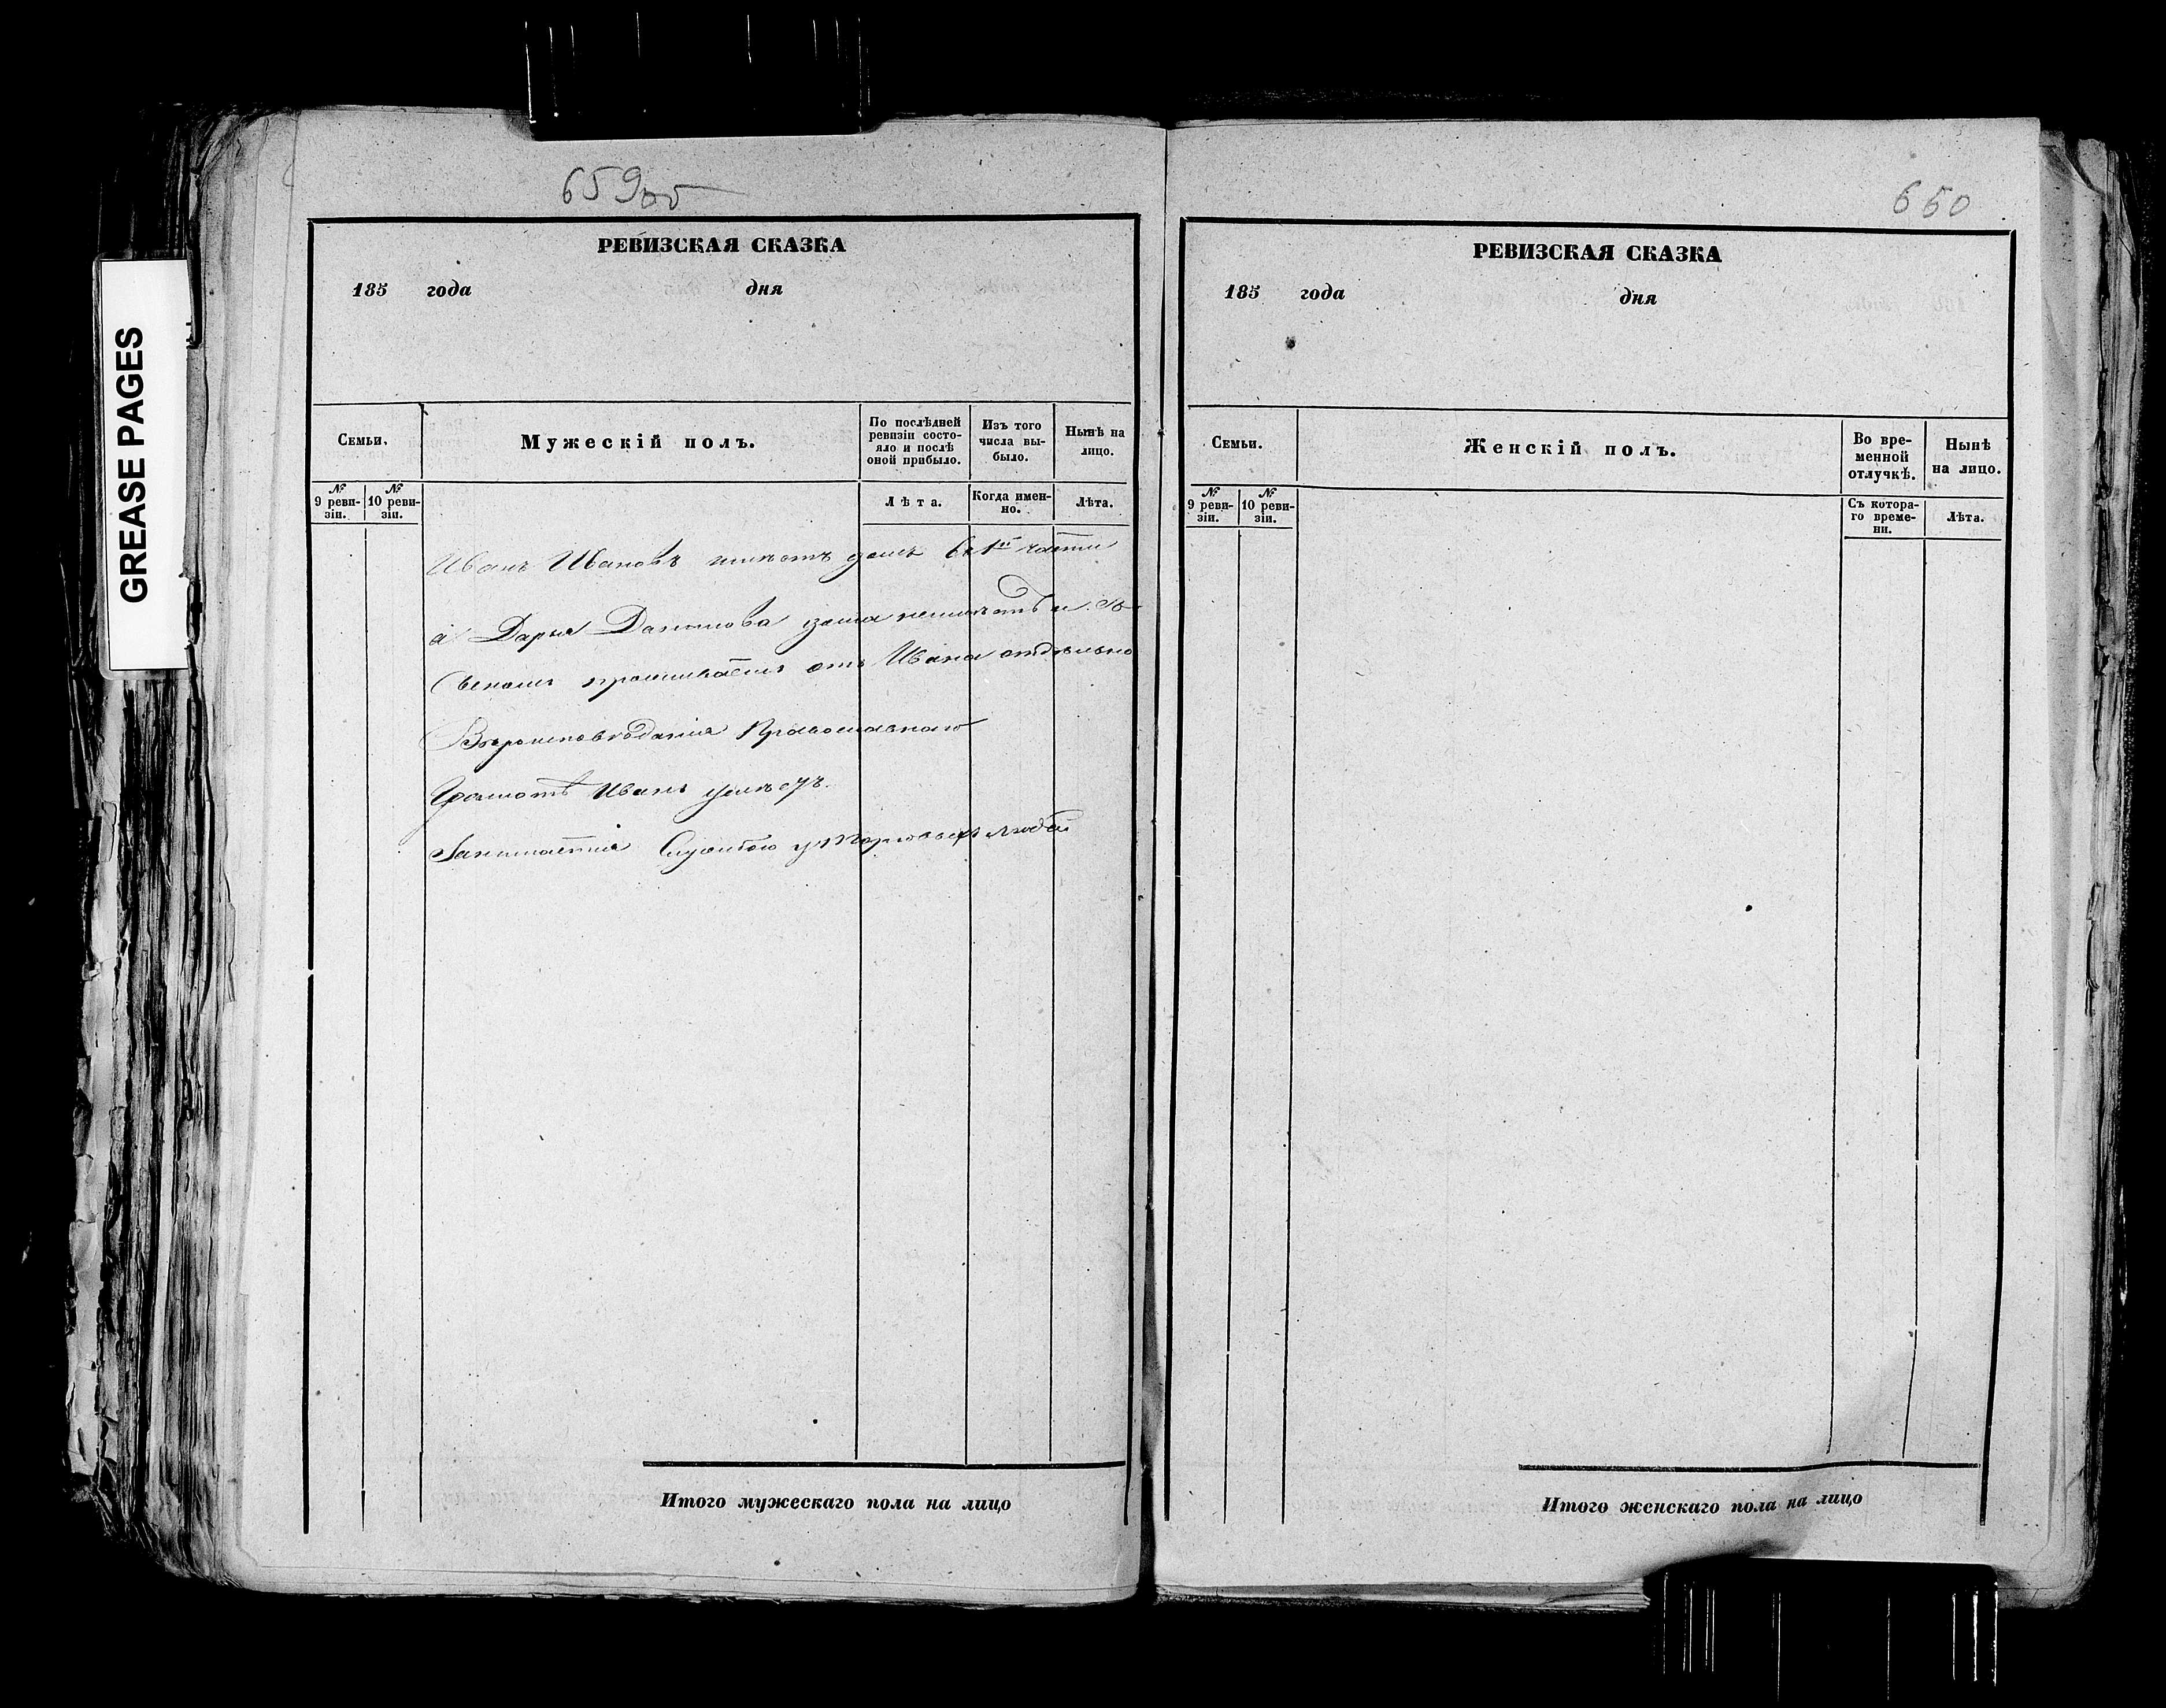 659об
РЕВИЗСКАЯ СКАЗКА
185 года дня
Семьи.
Мужескій полъ.
По послѣдней ревизіи состояло и послѣ оной прибыло.
Изъ того числа выбыло.
Нынѣ на лицо.
№ 9 ревизіи.
№ 10 ревизіи.
Лѣта.
Когда именно.
Лѣта.
Иванъ Ивановъ имѣетъ домъ въ 1й части
а Дарья Данилова дома неимѣетъ и со
проживаетъ отъ Ивана отдѣльно
Вѣроисповѣданія Православнаго
Грамотѣ Иванъ умѣетъ.
Занимается Службою у торговыхъ людей
Итого мужескаго пола на лицо
660
РЕВИЗСКАЯ СКАЗКА
185 года дня
Семьи.
Женскій полъ.
Во временной отлучкѣ.
Нынѣ на лицо.
№ 9 ревизіи.
№ 10 ревизіи.
Съ котораго времени.
Лѣта.
Итого женскаго пола на лицо
GREASE PAGES